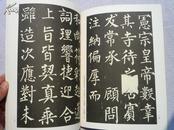 憲宗皇帝數幸
其寺待之若賓
友常承顧問
注納偏厚而
和尚符彩超邁
詞理響捷迎合
上旨皆契真乘
雖造次應對未